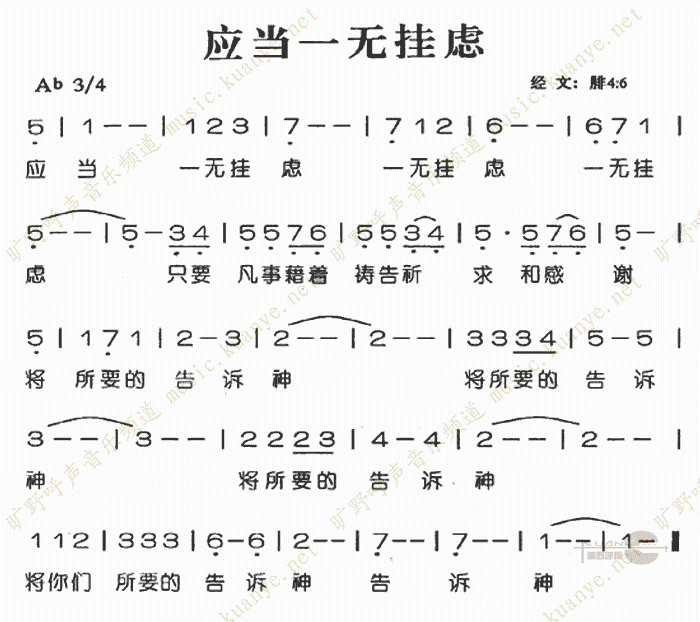 应当一无挂虑
Ab 3/4 经文：腓4:6
5 | 1 - - | 1 2 3 | 7 - - | 7 1 2 | 6 - - | 6 7 1 |
应 当 一无挂 虑 一无挂 虑 一无挂
5 - - | 5 - 3 4 | 5 5 7 6 | 5 5 3 4 | 5 · 5 7 6 | 5 - - |
虑 只要 凡事藉着 祷告祈 求 和感 谢
5 | 1 7 1 | 2 - 3 | 2 - - | 2 - - | 3 3 3 4 | 5 - 5 |
将 所要的 告 诉 神 将所要的 告 诉
3 - - | 3 - - | 2 2 2 3 | 4 - 4 | 2 - - | 2 - - |
神 将所要的 告 诉 神
1 1 2 | 3 3 3 | 6 - 6 | 2 - - | 7 - - | 7 - - | 1 - - | 1 - ‖
将你们 所要的 告 诉 神 告 诉 神
旷野呼声音乐频道 music.kuanye.net